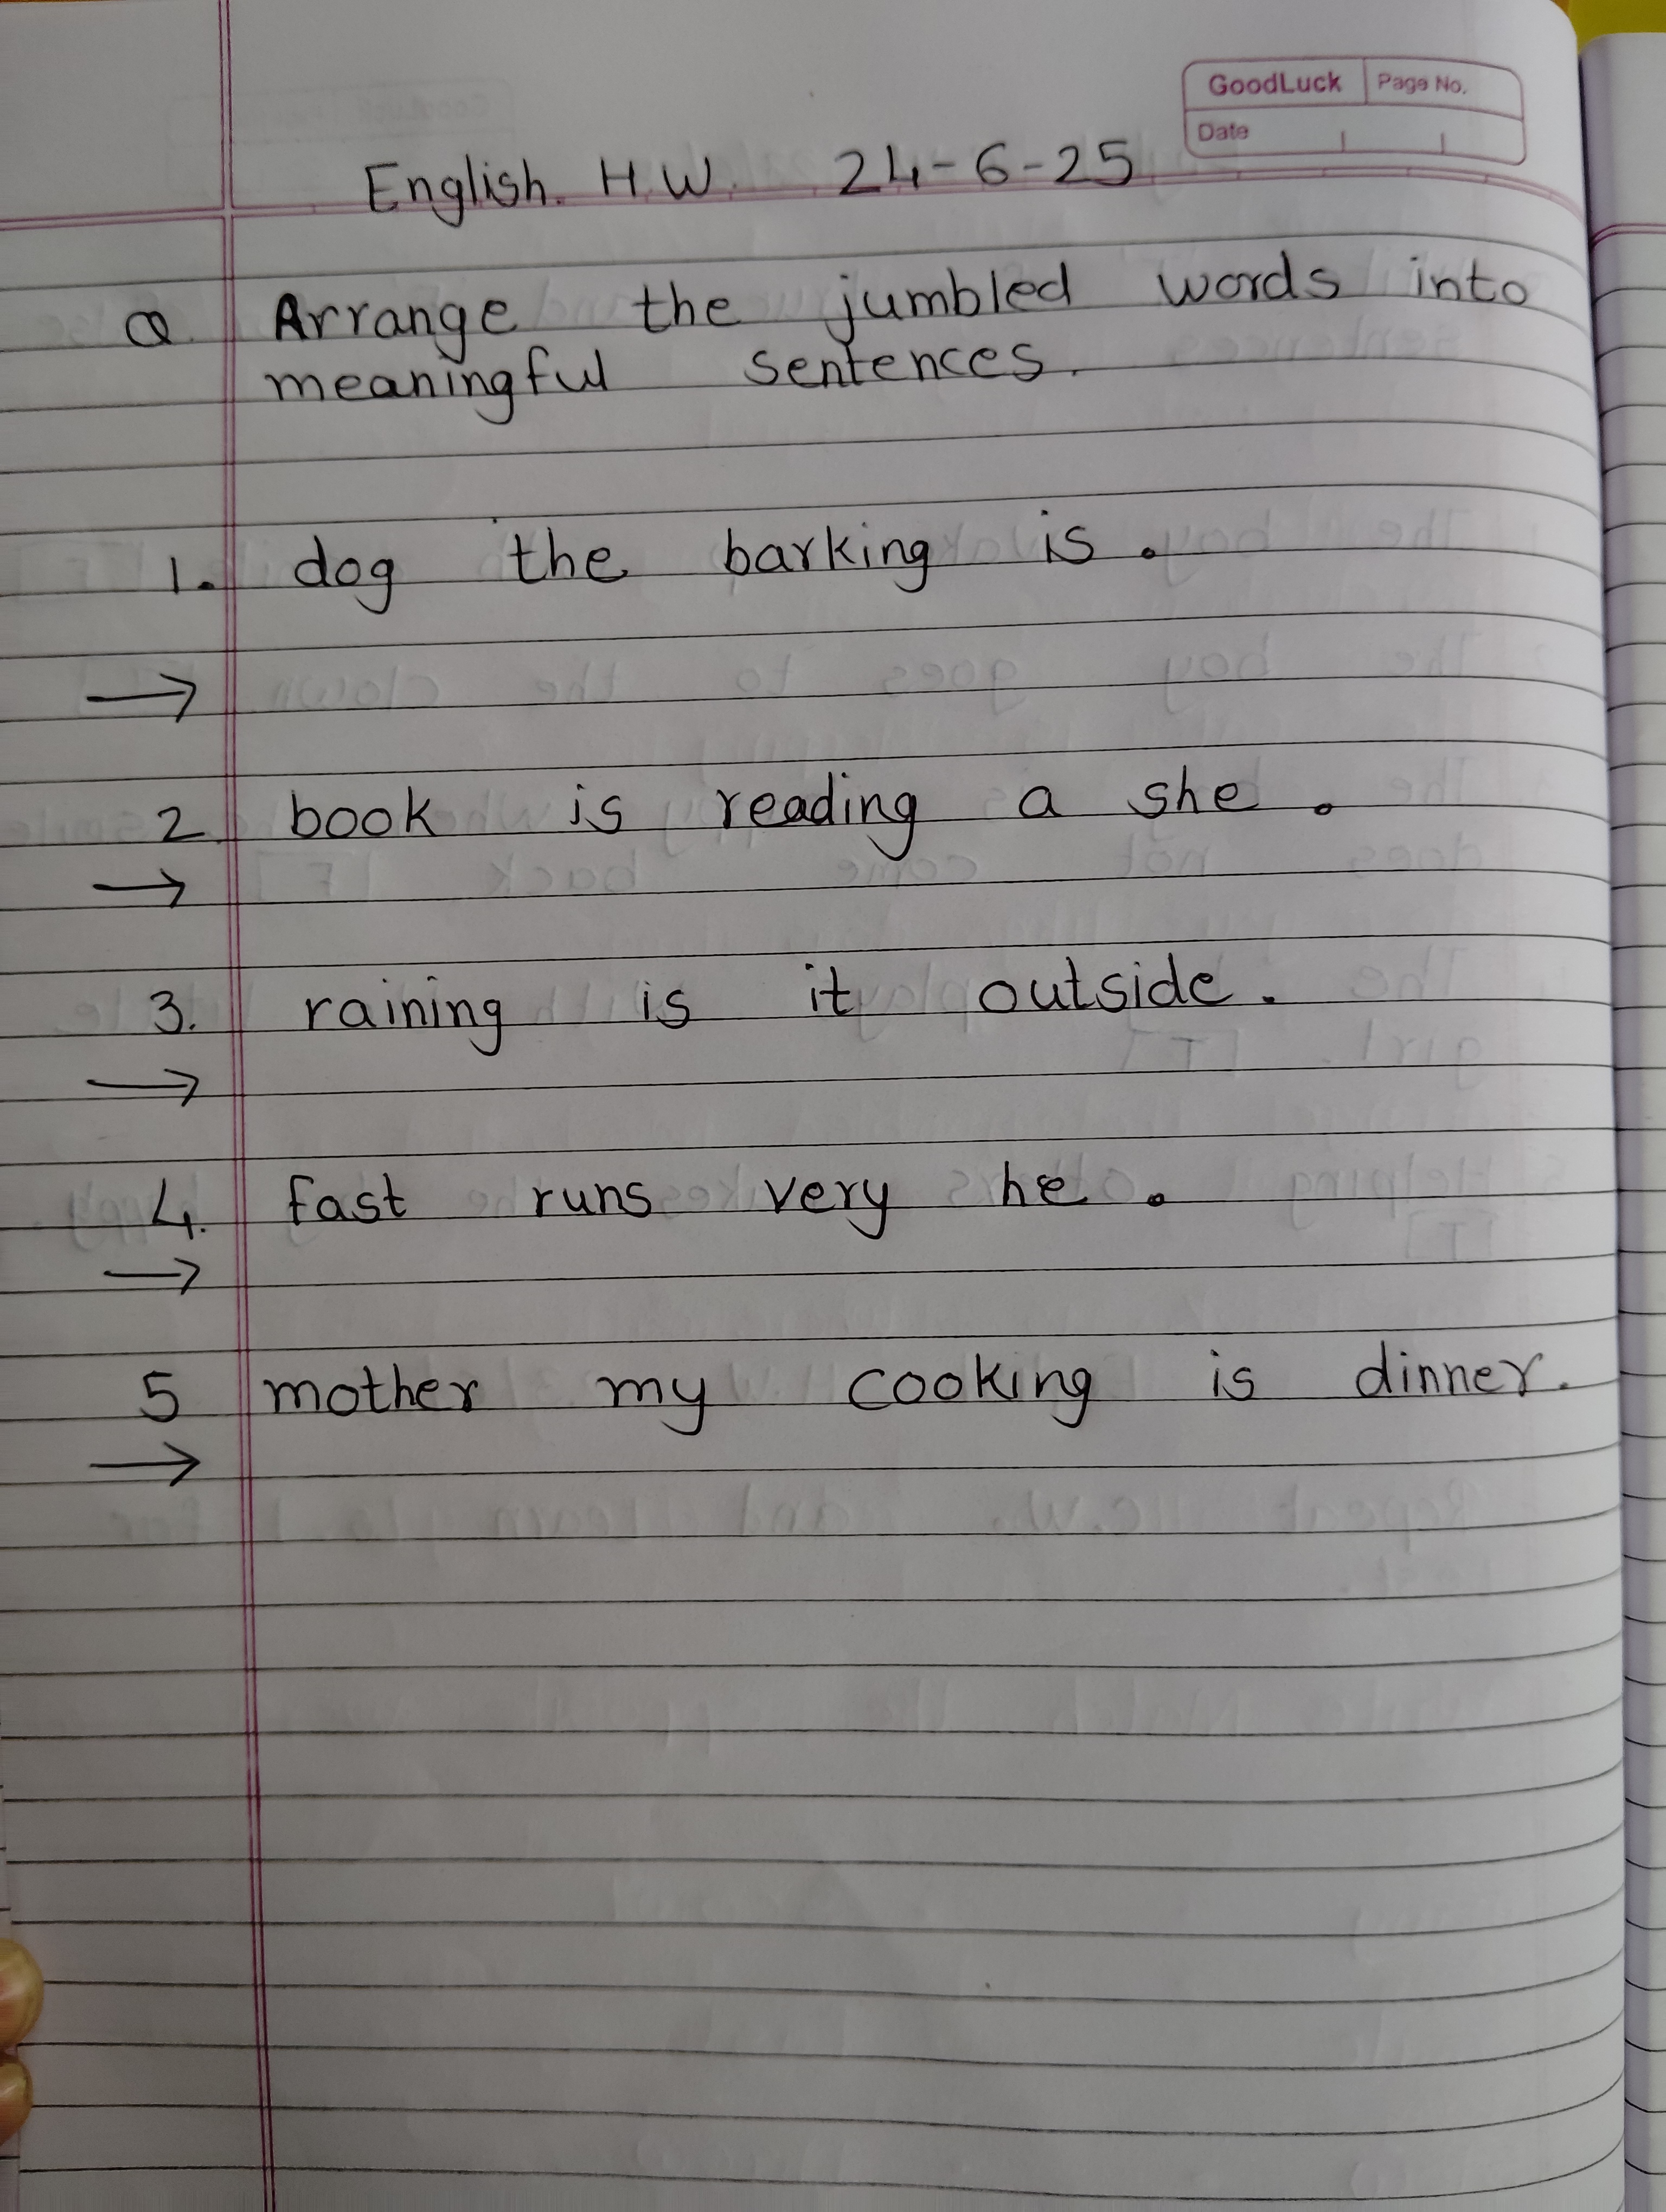 GoodLuck Page No.
Date
English. H.W. 24-6-25
Q. Arrange the jumbled words into
meaningful sentences.
1. dog the barking is.
→
2. book is reading a she.
→
3. raining is it outside.
→
4. fast runs very he.
→
5 mother my cooking is dinner.
→